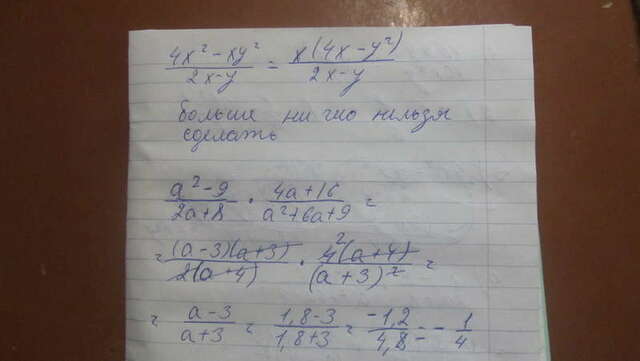 4x² - xy² / 2x - y = x(4x - y²) / 2x - y
больше ни что нельзя
сделать
a² - 9 / 2a + 8 · 4a + 16 / a² + 6a + 9 =
= (a - 3)(a + 3) / 2(a + 4) · 4² (a + 4) / (a + 3)² =
= a - 3 / a + 3 = 1,8 - 3 / 1,8 + 3 = -1,2 / 4,8 = - 1 / 4